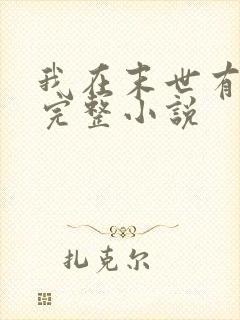 我在末世有
完整小説
扎克尔